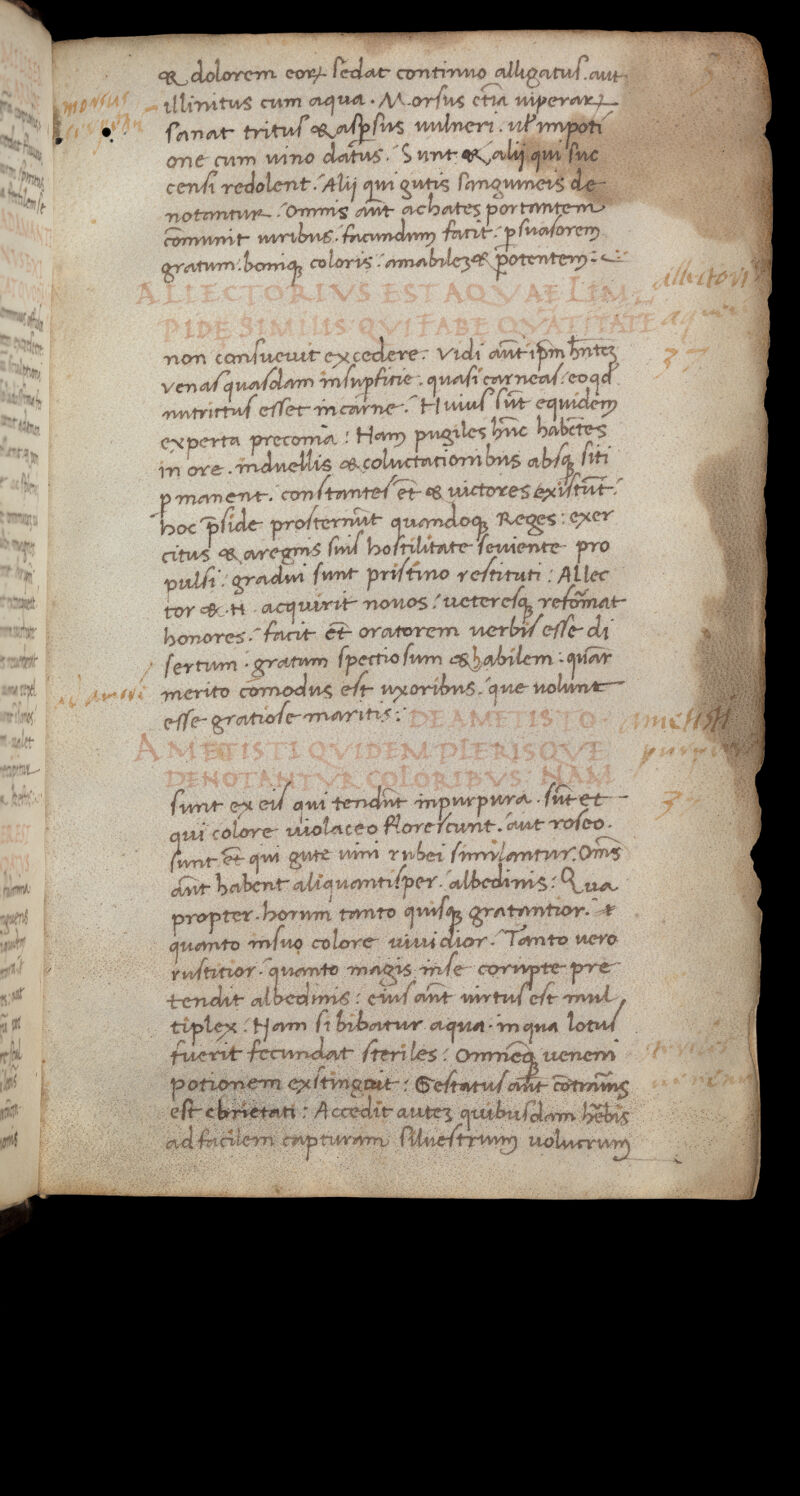 & dolorem eoꝝ sedat continuo alligatus. aut
illinitus cum aqua. Morsus etiā uiperaꝝ
sanat tritus & asꝑsus uulneri. uł impoti
one cum uino datus. Sunt & alij qui suc
censi redolent. Alij qui gutis sanguineis de
notantur. Omnis aūt achates portantem
cōmunit uiribus. facundum facit. ꝑsuasorem
gratum. boniqꝫ coloris. amabileꝫ & potentem:
ALLECTORIVS EST AQVAE LIM
PIDE SIMILIS QVI FABE QVĀTITATE
non consueuit excedere. Vidi aūt ip̄m hn̄teꝫ
venas quasdam insuꝑficie. quasi carneas. eo qd
nutritus esset in carne. Huius sūt equidem
experta preconia: Nam pugiles hūc habētes
in ore. induellis & coluctationibus absqꝫ siti
ꝑmanent. constantes ēt & uictores existūt.
hoc p̄side prosternūt quandoqꝫ Reges: exer
citus & aregnis suis hostilitate seuiente pro
pulsi. gradui sunt pristino restituti: Allec
tor & .N. acquirit nouos. ueteresqꝫ refōmat
honores. facit ēt oratorem uerbis esse di
sertum. gratum spectiosum & habilem: quār
merito comodus est uxoribus. que uolunt
esse gratiose maritis: DE AMETISTO
AMETISTI QVIDEM PLERISQVE
DENOTANTVR COLORIBVS. NAM
sunt ex eis qui tendūt inpurpura. sūt et
qui colore uiolaceo florescunt. aut roseo.
sunt ēt qui gute uini rubei similantur. Om̄s
aūt habent aliquantisper. albedinis: Qua
propter. horum tanto quisqꝫ gratantior.
quanto insuo colore uiuidior. Tanto uero
rustitior. quanto magis inse corupte pre
tendit albedinis: eius aūt uirtus est mul
tiplex: Nam si bibatur aqua. inqua lotus
fuerit fecundat steriles: Omneqꝫ ueneni
potionem extinguit: Gestatus aūt cōtrarius
est ebrietati: Accedit auteꝫ quibusdam hēbis
ad facilem capturam siluestrium uolucrum
morsus
allectori
37
ametisti
steriles